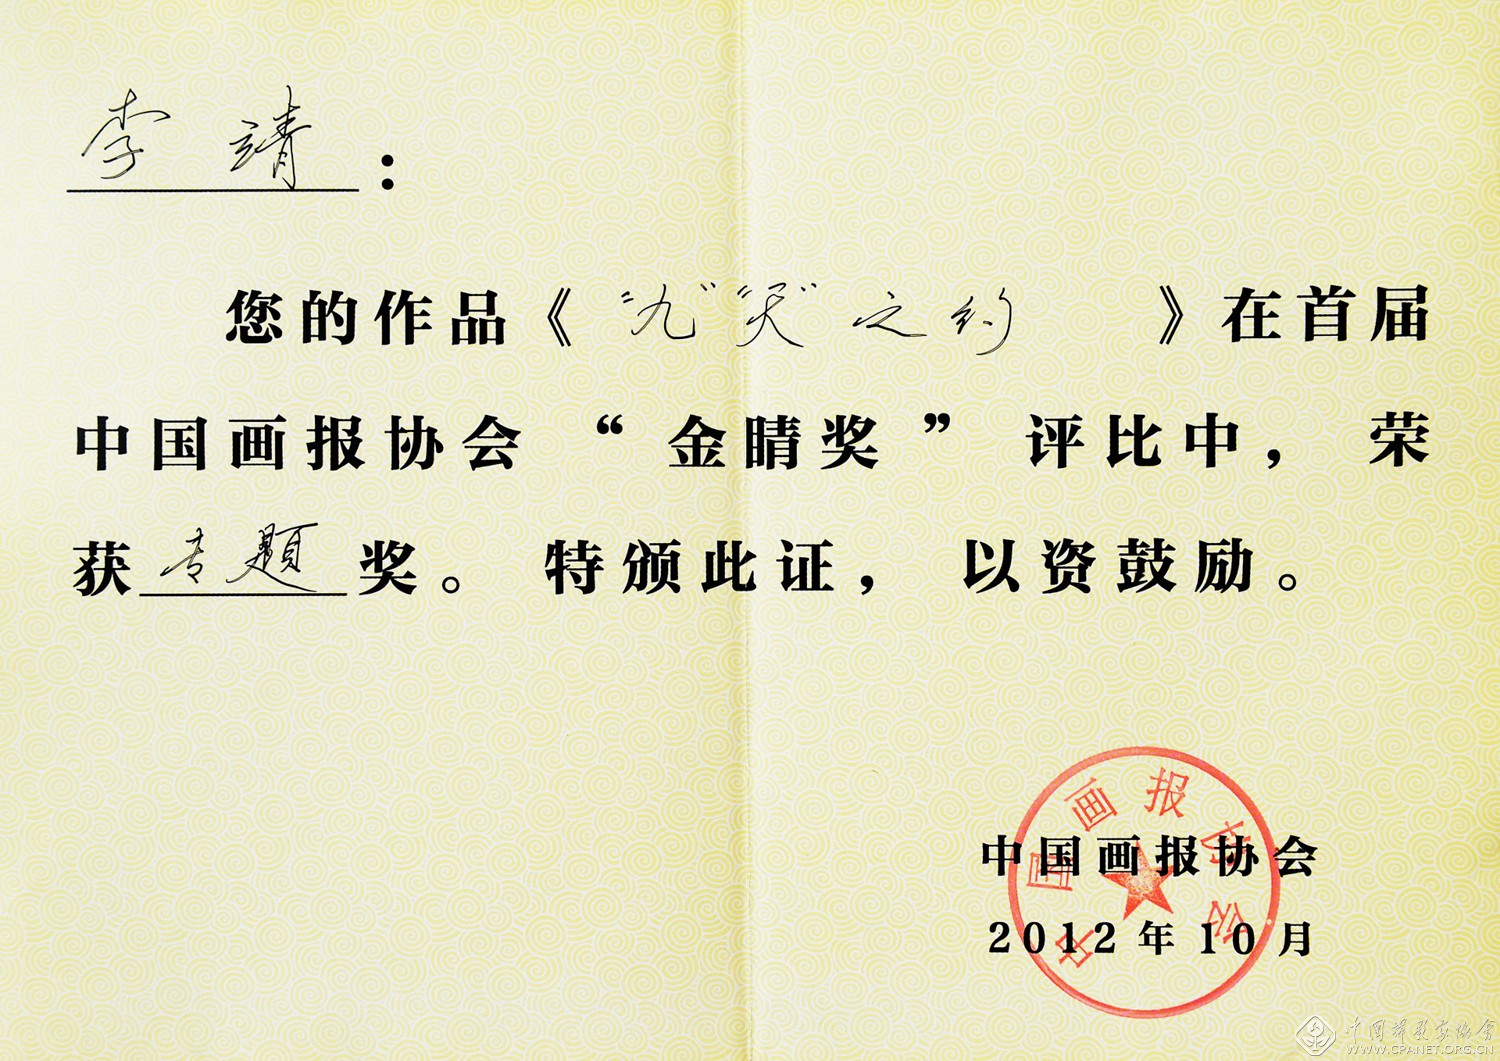 李靖：
您的作品《“九”“天”之约》在首届
中国画报协会“金睛奖”评比中，荣
获专题奖。特颁此证，以资鼓励。
中国画报协会
中国画报协会
2012年10月
中国摄影家协会
WWW.CPANET.ORG.CN